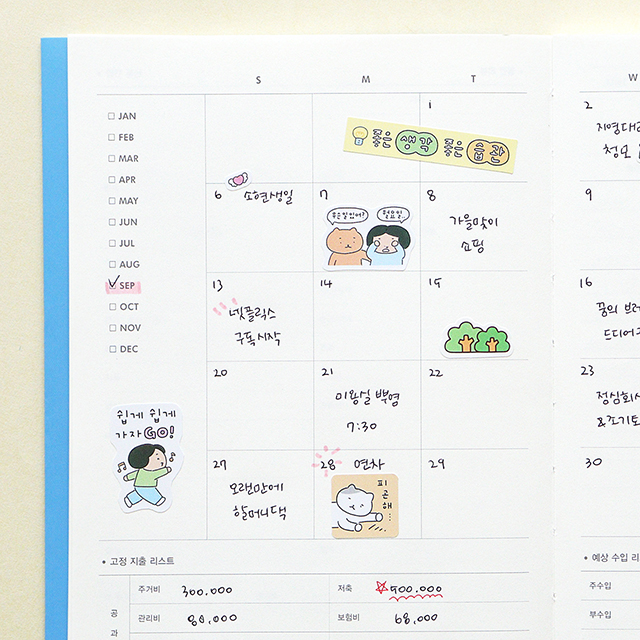 S M T W
1
좋은 생각 좋은 습관
2
JAN
FEB
MAR
APR
MAY
JUN
JUL
AUG
SEP
OCT
NOV
DEC
6 소현생일
7
무슨일있어?
월요일..
8
가을맞이
쇼핑
9
13
넷플릭스
구독시작
14
15
16
꿈의
드디어
20
21
미용실 뿌염
7:30
22
23
점심회사
&조기퇴
쉽게 쉽게
가자GO!
27
오랜만에
할머니댁
28 연차
피곤해...
29
30
• 고정 지출 리스트
• 예상 수입 리
주거비 300,000
저축 ☆500,000
주수입
공과
관리비 80,000
보험비 68,000
부수입